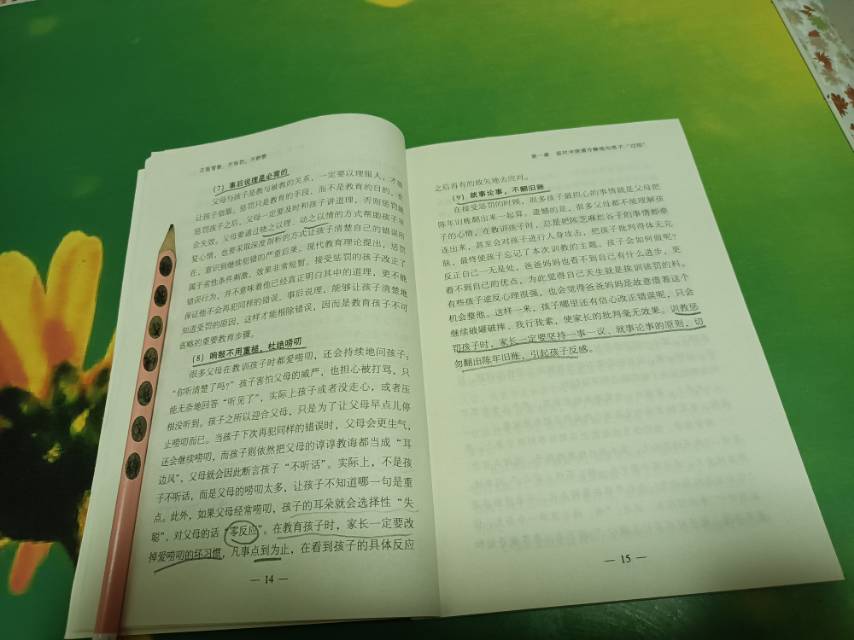 正面管教：不惩罚，不娇惯
（7）事后说理是必需的
父母与孩子是教与被教的关系，一定要以理服人，才能
让孩子信服。惩罚只是教育的手段，而不是教育的目的。在
惩罚孩子之后，父母一定要及时和孩子讲道理，否则惩罚就
会失效。父母要通过晓之以理、动之以情的方式帮助孩子平
复心情，也要采取深度剖析的方式让孩子清楚自己的错误所
在，意识到继续犯错的严重后果。现代教育理论提出，惩罚
属于劣性条件刺激，效果非常短暂。接受惩罚的孩子改正了
错误行为，并不意味着他已经真正明白其中的道理，更不能
保证他不会再犯同样的错误。事后说理，能够让孩子清楚地
知道受罚的原因，这样才能根除错误，因而是教育孩子不可
忽略的重要教育步骤。
（8）响鼓不用重槌，杜绝唠叨
很多父母在教训孩子时都爱唠叨，还会持续地问孩子：
“你听清楚了吗？”孩子害怕父母的威严，也担心被打骂，只
能无奈地回答“听见了”，实际上孩子或者没走心，或者压
根没听到。孩子之所以迎合父母，只是为了让父母早点儿停
止唠叨而已。当孩子下次再犯同样的错误时，父母会更生气，
还会继续唠叨，而孩子则依然把父母的谆谆教诲都当成“耳
边风”，父母就会因此断言孩子“不听话”。实际上，不是孩
子不听话，而是父母的唠叨太多，让孩子不知道哪一句是重
点。此外，如果父母经常唠叨，孩子的耳朵就会选择性“失
聪”，对父母的话“零反应”。在教育孩子时，家长一定要改
掉爱唠叨的坏习惯，凡事点到为止，在看到孩子的具体反应
— 14 —
第一章
之后再有的放矢地去应对。
（9）就事论事，不翻旧账
在接受惩罚的时候，很多孩子最担心的事情就是父母把
陈年旧账翻出来一起算。遗憾的是，很多父母都不能理解孩
子的心情，在教训孩子时，总是把陈芝麻烂谷子的事情都牵
连出来，甚至会对孩子进行人身攻击，把孩子批判得体无完
肤，最终使孩子忘记了本次训教的主题。孩子会如何做呢？
反正自己一无是处，爸爸妈妈也看不到自己有什么进步，更
看不到自己的优点，为此觉得自己天生就是挨训惩罚的料。
有些孩子逆反心理很强，也会觉得爸爸妈妈是故意借着这个
机会整他。这样一来，孩子哪里还有信心改正错呢，只会
继续破罐破摔、我行我素，使家长的批判毫无效果。训教惩
罚孩子时，家长一定要坚持一事一议、就事论事的原则，切
勿翻出陈年旧账，引起孩子反感。
— 15 —